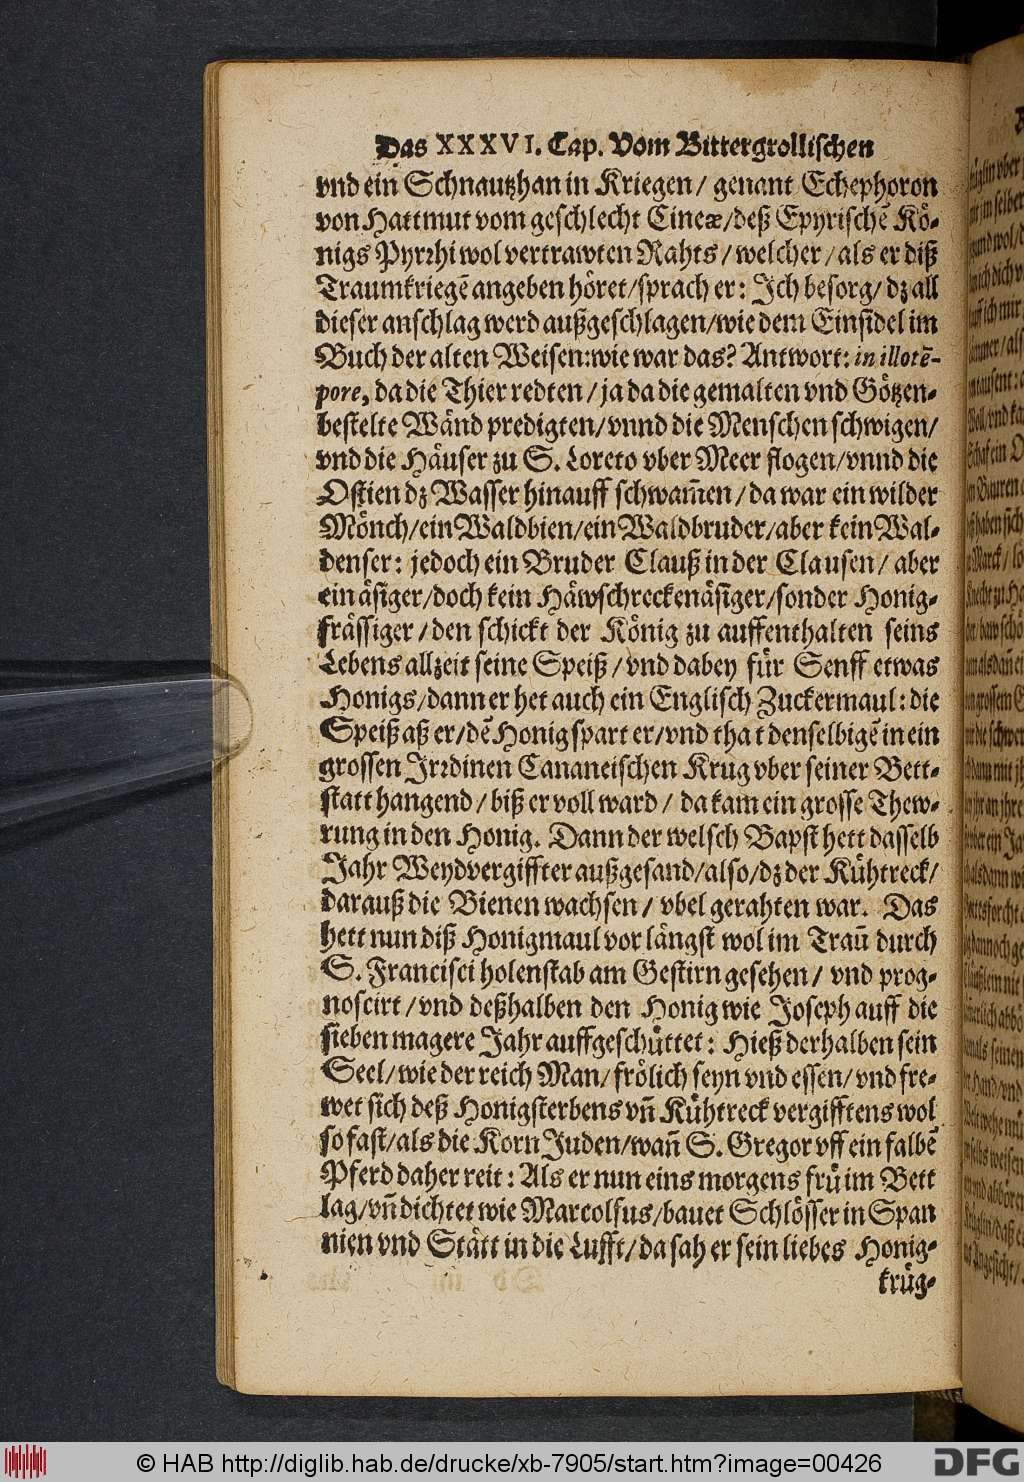 Das XXXVI. Cap. Vom Bittergrollischen
vnd ein Schnautzhan in Kriegen / genant Echephoron
von Hattmut vom geschlecht Cineæ/deß Epyrischē Kö-
nigs Pyrrhi wol vertrawten Rahts / welcher / als er diß
Traumkriegē angeben höret/sprach er: Ich besorg/ dz all
dieser anschlag werd außgeschlagen/wie dem Einsidel im
Buch der alten Weisen: wie war das? Antwort: in illo tē-
pore, da die Thier redten / ja da die gemalten vnd Götzen-
bestelte Wänd predigten/ vnnd die Menschen schwigen/
vnd die Häuser zu S. Loreto vber Meer flogen/ vnnd die
Ostien dz Wasser hinauff schwam̄en / da war ein wilder
Mönch/ein Waldbien/ein Waldbruder/aber kein Wal-
denser: jedoch ein Bruder Clauß in der Clausen / aber
ein äsiger/doch kein Häwschreckenäsiger/sonder Honig-
frässiger / den schickt der König zu auffenthalten seins
Lebens allzeit seine Speiß / vnd dabey für Senff etwas
Honigs/dann er het auch ein Englisch Zuckermaul: die
Speiß aß er/dē Honig spart er/vnd that denselbigē in ein
grossen Irrdinen Cananeischen Krug vber seiner Bett-
statt hangend / biß er voll ward / da kam ein grosse Thew-
rung in den Honig. Dann der welsch Bapst hett dasselb
Jahr Weydvergiffter außgesand/also/dz der Kühtreck/
darauß die Bienen wachsen / vbel gerahten war. Das
hett nun diß Honigmaul vor längst wol im Traū durch
S. Francisci holenstab am Gestirn gesehen / vnd prog-
noscirt / vnd deßhalben den Honig wie Joseph auff die
sieben magere Jahr auffgeschüttet: Hieß derhalben sein
Seel/wie der reich Man/ frölich seyn vnd essen/ vnd fre-
wet sich deß Honigsterbens vn̄ Kühtreck vergifftens wol
so fast/als die Korn Juden/wan̄ S. Gregor vff ein falbē
Pferd daher reit: Als er nun eins morgens frü im Bett
lag/vn̄ dichtet wie Marcolfus/bauet Schlösser in Span
nien vnd Stätt in die Lufft/da sah er sein liebes Honig-
krüg-
© HAB http://diglib.hab.de/drucke/xb-7905/start.htm?image=00426
DFG